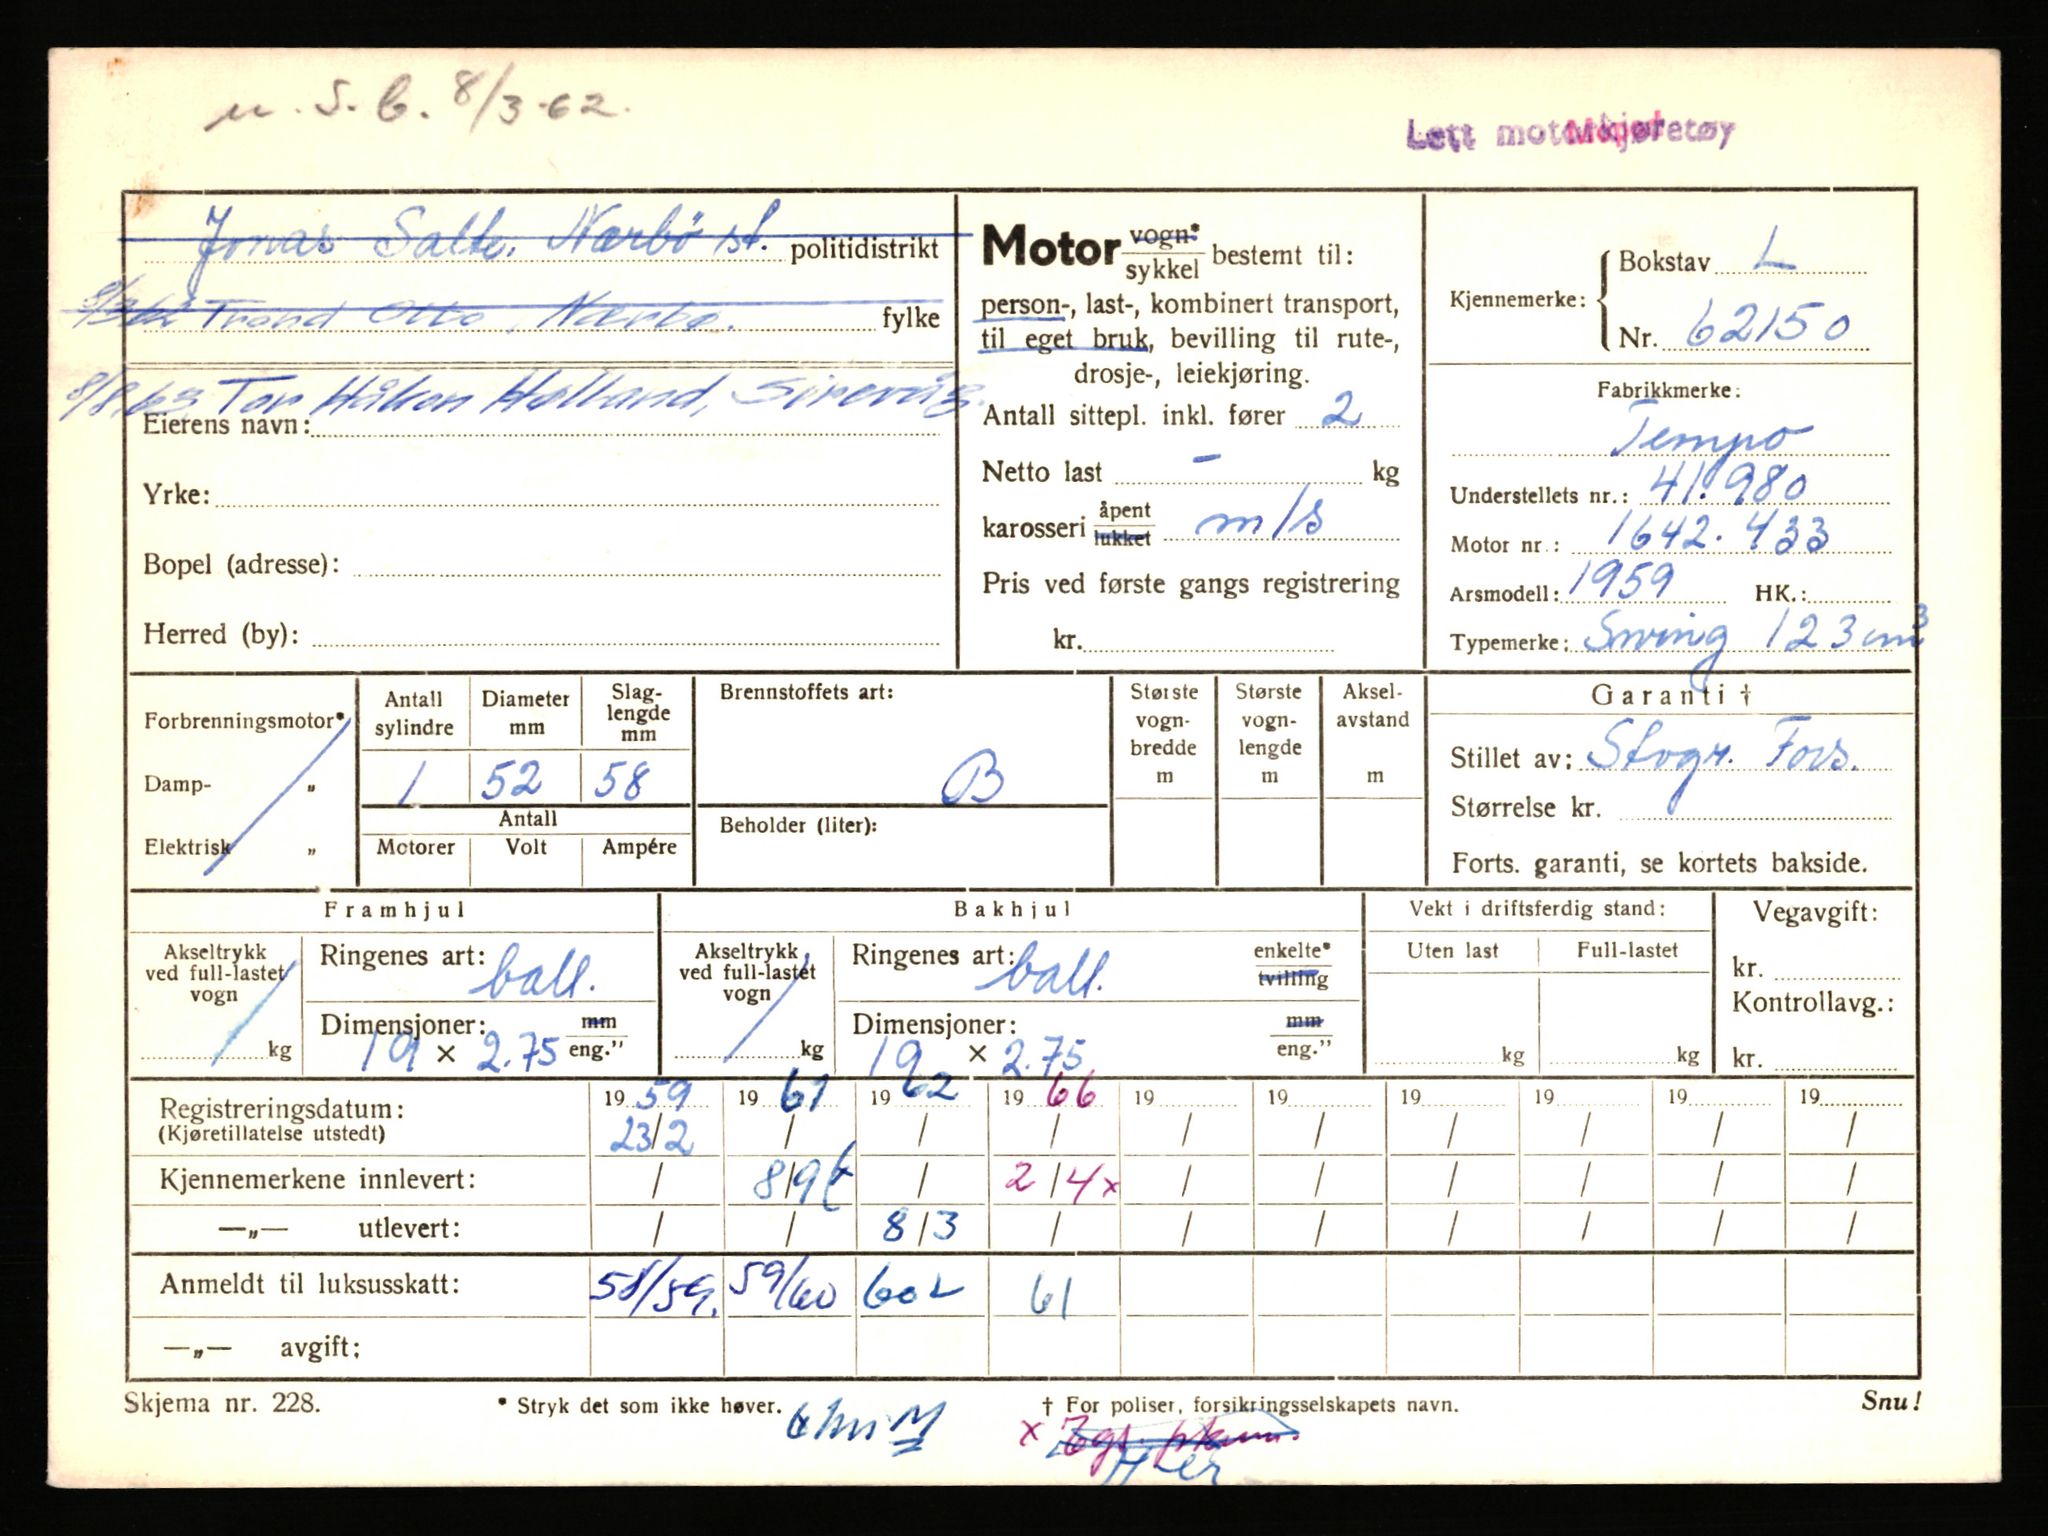 u. s. b. 8/3-62.
Lett motorkjøretøy
Jonas Salte. Nærbö st. politidistrikt
8/3 62 Trond Otto, Nærbø. fylke
8/8.63 Tor Håkon Hølland, Sirevåg.
Eierens navn:
Yrke:
Bopel (adresse):
Herred (by):
Motor vogn* sykkel bestemt til:
person-, last-, kombinert transport,
til eget bruk, bevilling til rute-,
drosje-, leiekjøring.
Antall sittepl. inkl. fører 2
Netto last - kg
karosseri åpent lukket m/s
Pris ved første gangs registrering
kr.
Kjennemerke: Bokstav L
Nr. 62150
Fabrikkmerke:
Tempo
Understellets nr.: 41.980
Motor nr.: 1642.433
Arsmodell: 1959 HK.:
Typemerke: Swing 123 cm3
Forbrenningsmotor*
Damp- „
Elektrisk „
Antall sylindre Diameter mm Slag-lengde mm
1 52 58
Antall
Motorer Volt Ampére
Brennstoffets art:
B
Beholder (liter):
Største vogn-bredde m
Største vogn-lengde m
Aksel-avstand m
Garanti †
Stillet av: Storgr. Fors.
Størrelse kr.
Forts. garanti, se kortets bakside.
Framhjul
Akseltrykk ved full-lastet vogn
kg
Ringenes art: ball.
Dimensjoner: mm eng."
19 x 2.75
Bakhjul
Akseltrykk ved full-lastet vogn
kg
Ringenes art: ball. enkelte* tvilling
Dimensjoner: mm eng."
19 x 2.75
Vekt i driftsferdig stand:
Uten last Full-lastet
kg kg
Vegavgift:
kr.
Kontrollavg.:
kr.
Registreringsdatum: 19 59 19 61 19 62 19 66 19 19 19 19 19 19
(Kjøretillatelse utstedt) 23/2 / / / / / / / / /
Kjennemerkene innlevert: / 8/9 / 2/4 x / / / / / /
—„— utlevert: / / 8/3 / / / / / / /
Anmeldt til luksusskatt: 58/59. 59/60 60 61
—„— avgift:
Skjema nr. 228. * Stryk det som ikke høver. † For poliser, forsikringsselskapets navn. Snu!